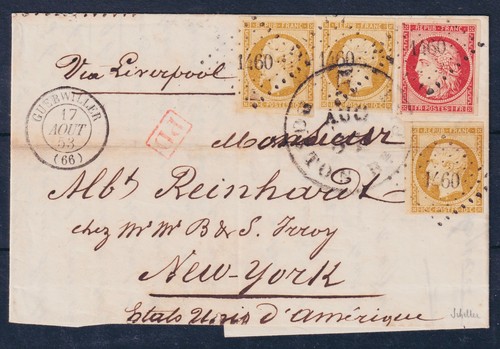 REPUB. FRANC.
REPUB. FRANC.
REPUB. FRANC.
1460
1460
1460
1.FR. POSTES 1.FR.
Via Liverpool
GUEBWILLER
17
AOUT
53
(66)
P.D.
AUG
Monsieur
REPUB. FRANC.
1460
Albt Reinhardt
chez Mr Mr B & S.
New-York
Etats Unis d'Amérique